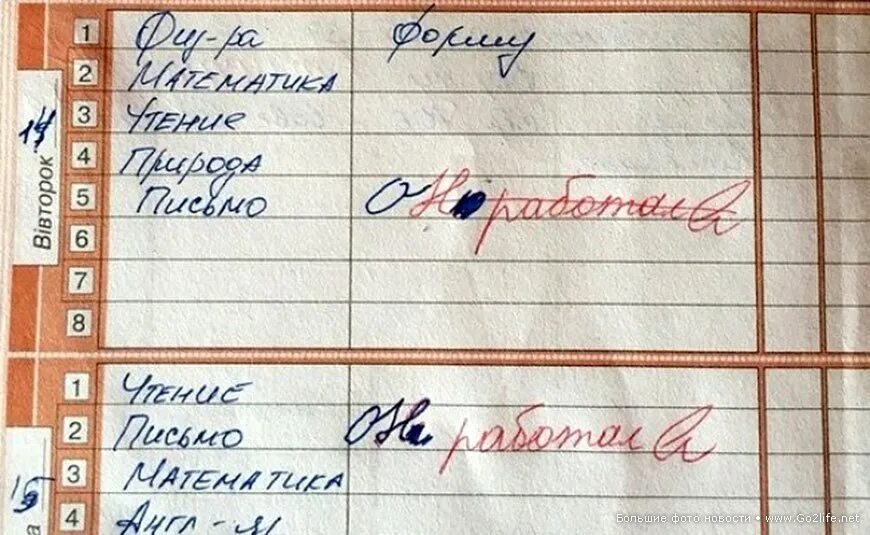 1 Физ-ра Форму
2 Математика
3 Чтение
4 Природа
5 Письмо Он работал
6
7
8
14
Вівторок
1 Чтение
2 Письмо Он работал
3 Математика
4 Англ-й
15
а
Большие фото новости • www.Go2life.net